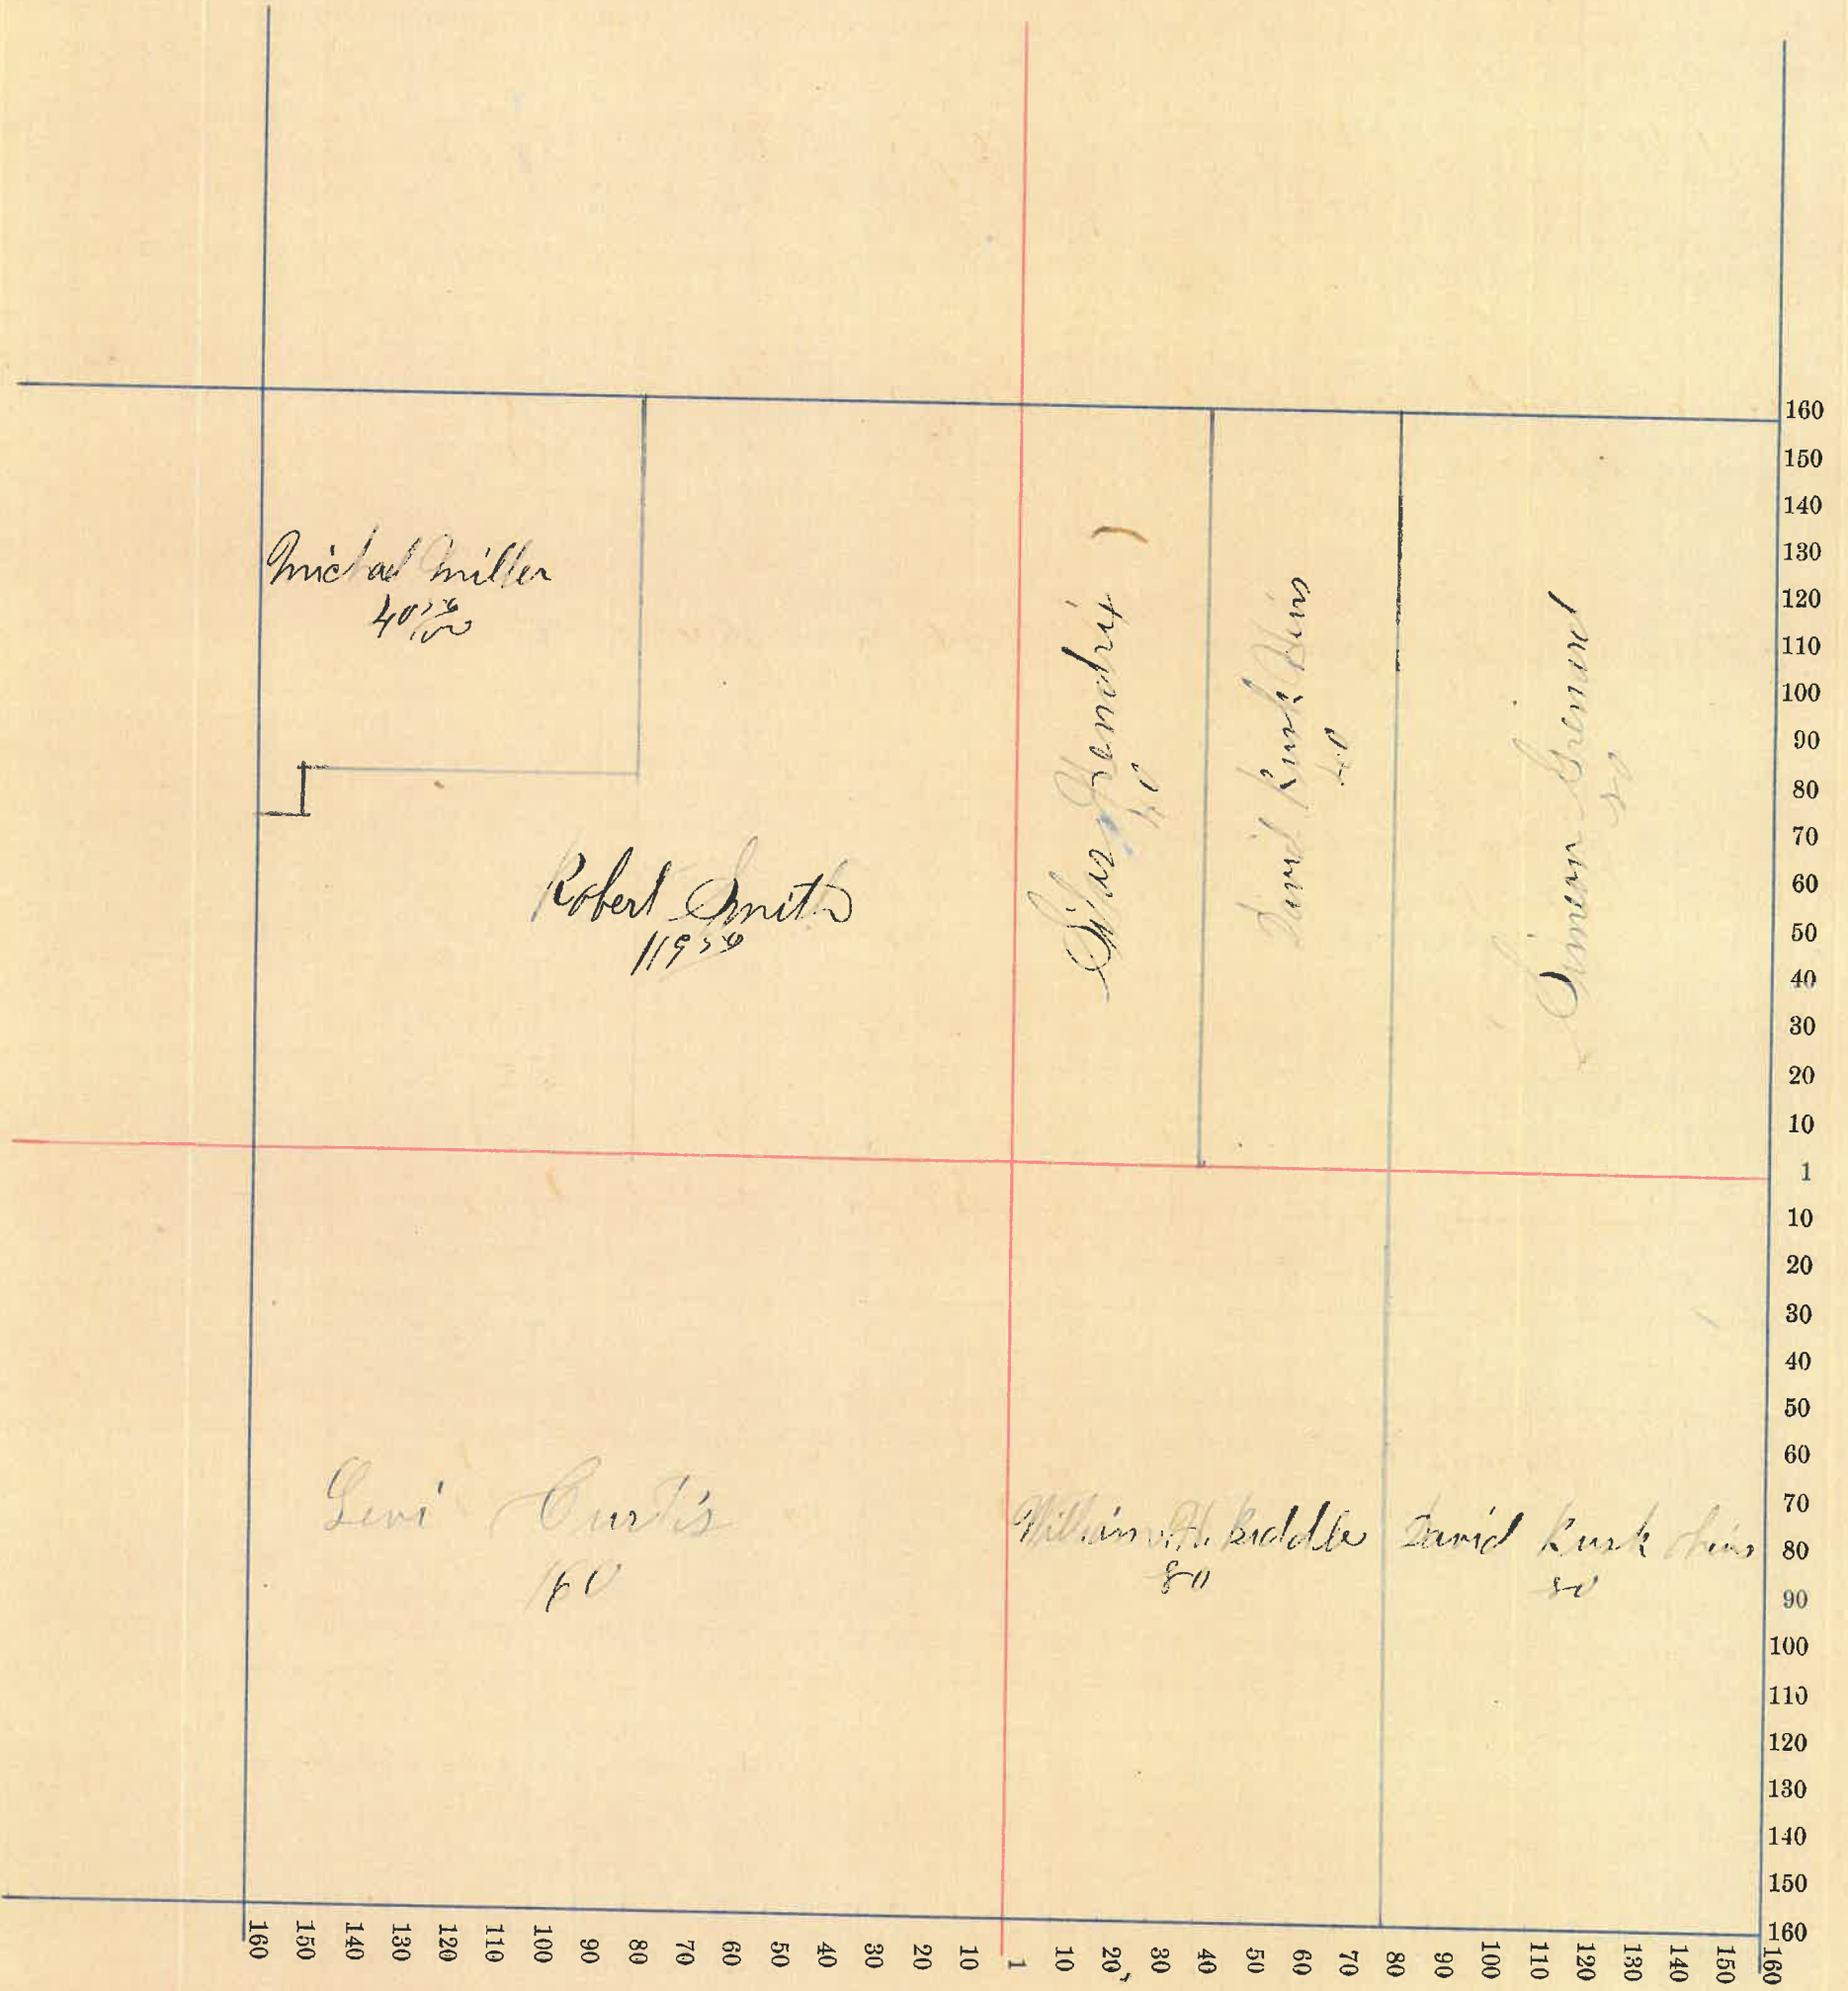 Michael Miller
Robert Smith
Silas Hendrix
40
David Kunk
40
Simeon
80
Levi Curtis
160
William H. Biddle
80
David Kunk
80
160
150
140
130
120
110
100
90
80
70
60
50
40
30
20
10
1
10
20
30
40
50
60
70
80
90
100
110
120
130
140
150
160
160 150 140 130 120 110 100 90 80 70 60 50 40 30 20 10 1 10 20 30 40 50 60 70 80 90 100 110 120 130 140 150 160